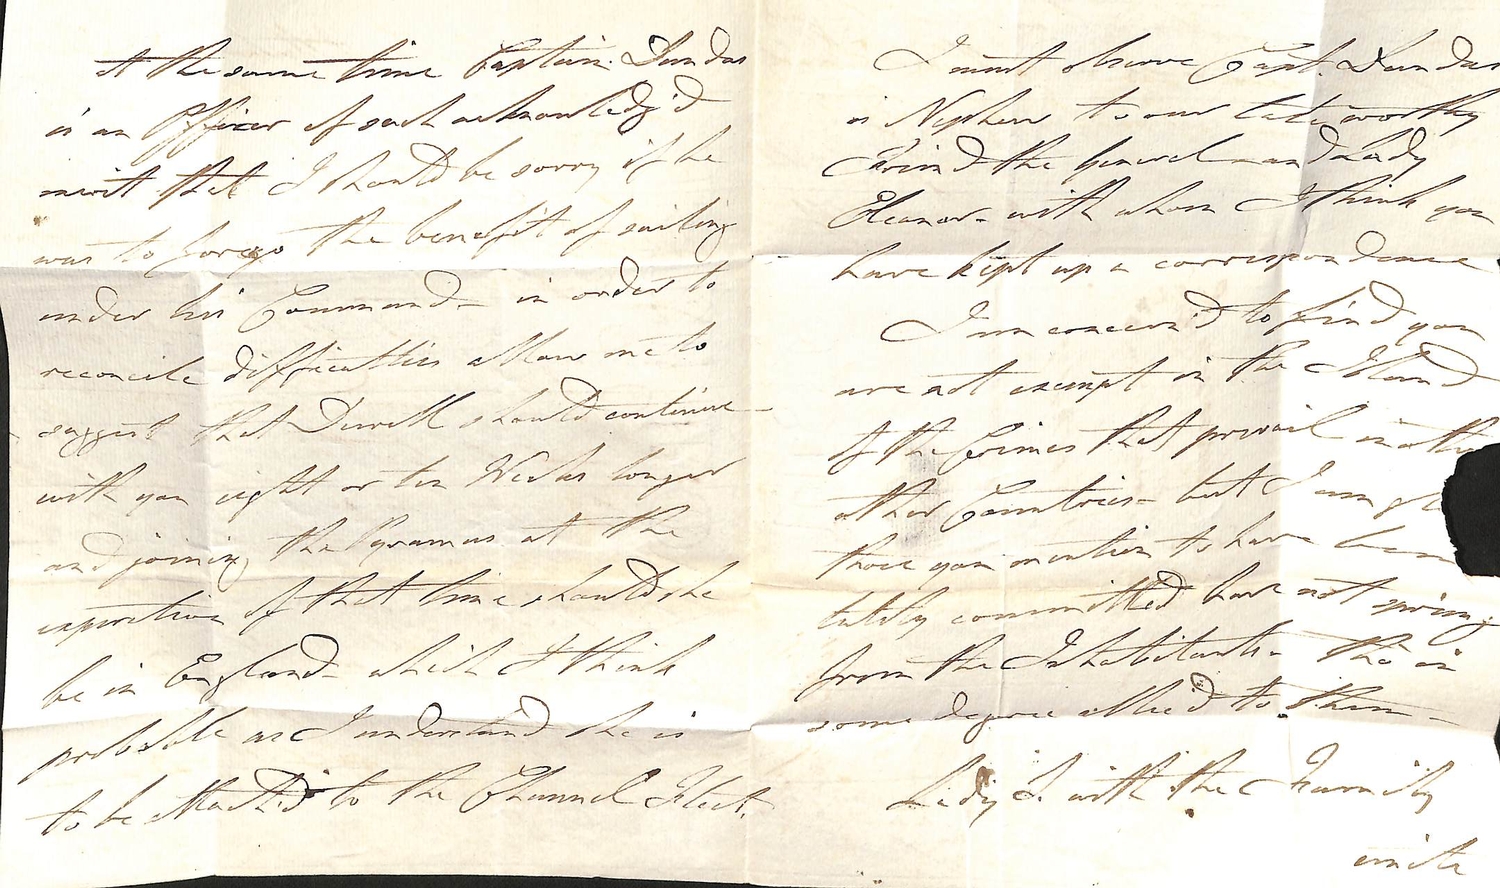 At the same time Captain Dundas
is an Officer of such acknowledg'd
merit that I should be sorry if he
was to forego the benefit of sailing
under his Command - in order to
reconcile difficulties allow me to
suggest that Durell should continue -
with you eight or ten Weeks longer
and joining the Pyramus at the
expiration of that time, should she
be in England - which I think
probable as I understand she is
to be Attach'd to the Channel Fleet.
I must observe Capt. Dundas
is Nephew to our late worthy
Friend the General - and Lady
Eleanor - with whom I think you
have kept up a correspondence
I am concern'd to find you
are not exempt in the Island
of the Crimes that prevail in
other Countries - but I am
those you mention to have been
lately committed have not sprung
from the Inhabitants - tho' in
some degree allied to them -
Lady S. with the Family
unite